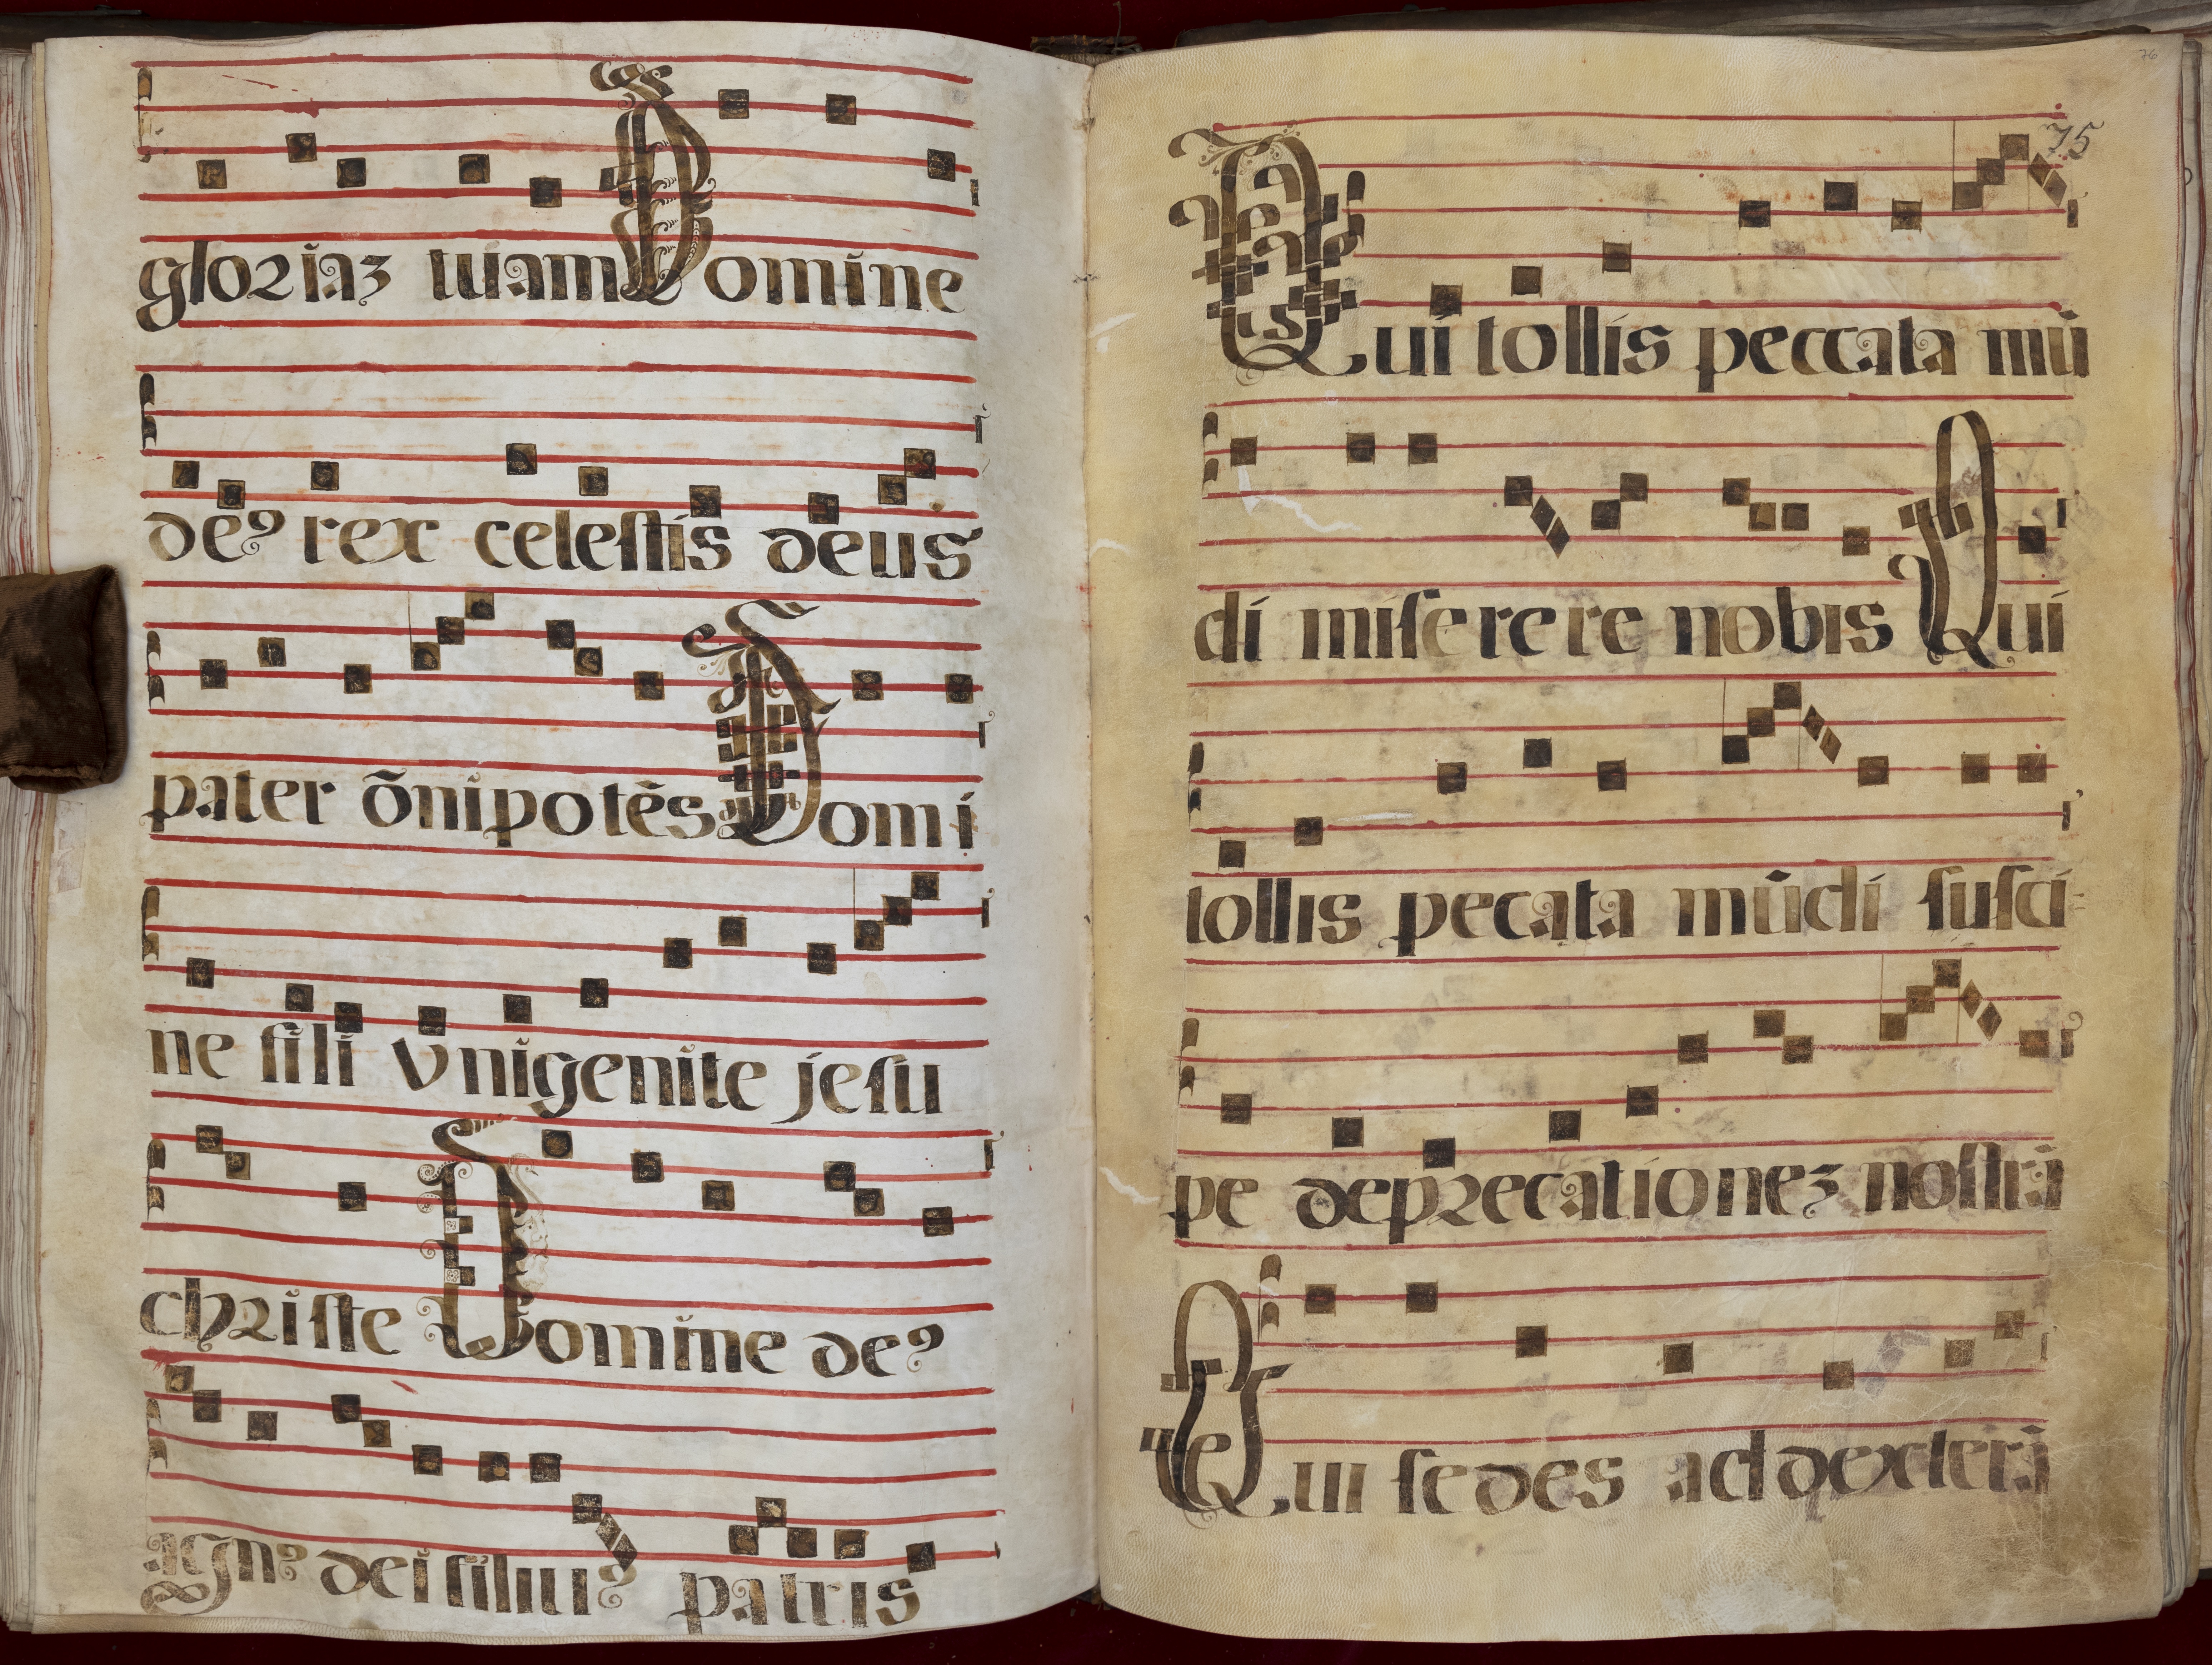 gloriaz tuam Domine
deꝰ rex celeſtis deus
pater õnipotēs Domi
ne fili Vnigenite jeſu
chriſte Domine deꝰ
agnꝰ dei filiuꝰ patris
76
75
Qui tollis peccata mū
di miſerere nobis Qui
tollis pecata mūdi ſuſci-
pe deprecationez noſtrā
Qui ſedes ad dexterā